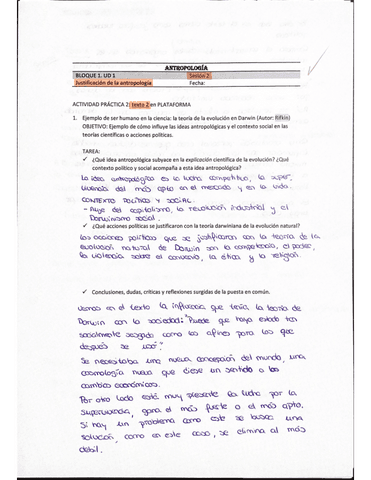 ANTROPOLOGÍA
BLOQUE 1. UD 1 Sesión 2
Justificación de la antropología Fecha:
ACTIVIDAD PRÁCTICA 2: texto 2 en PLATAFORMA
1. Ejemplo de ser humano en la ciencia: la teoría de la evolución en Darwin (Autor: Rifkin)
OBJETIVO: Ejemplo de cómo influye las ideas antropológicas y el contexto social en las
teorías científicas o acciones políticas.
TAREA:
✓ ¿Qué idea antropológica subyace en la explicación científica de la evolución? ¿Qué
contexto político y social acompaña a esta idea antropológica?
La idea antropológica es la lucha competitiva, la super,
vivencia del más apto en el mercado y en la vida.
CONTEXTO POLÍTICO Y SOCIAL.
- Auge del capitalismo, la revolución industrial y el
Darwinismo social.
✓ ¿Qué acciones políticas se justificaron con la teoría darwiniana de la evolución natural?
Las acciones políticas que se justificaron con la teoría de la
evolución natural de Darwin son la competencia, el poder,
la violencia sobre el consenso, la ética y la religión.
✓ Conclusiones, dudas, críticas y reflexiones surgidas de la puesta en común.
Vemos en el texto la influencia que tenía la teoría de
Darwin con la sociedad: "Puede que haya estado tan
socialmente sesgado como los afines para los que
después se usó".
Se necesitaba una nueva concepción del mundo, una
cosmología nueva que diese un sentido a los
cambios económicos.
Por otro lado está muy presente la lucha por la
supervivencia, gana el más fuerte o el más apto.
Si hay un problema como este se busca una
solución, como en este caso, se elimina al más
débil.